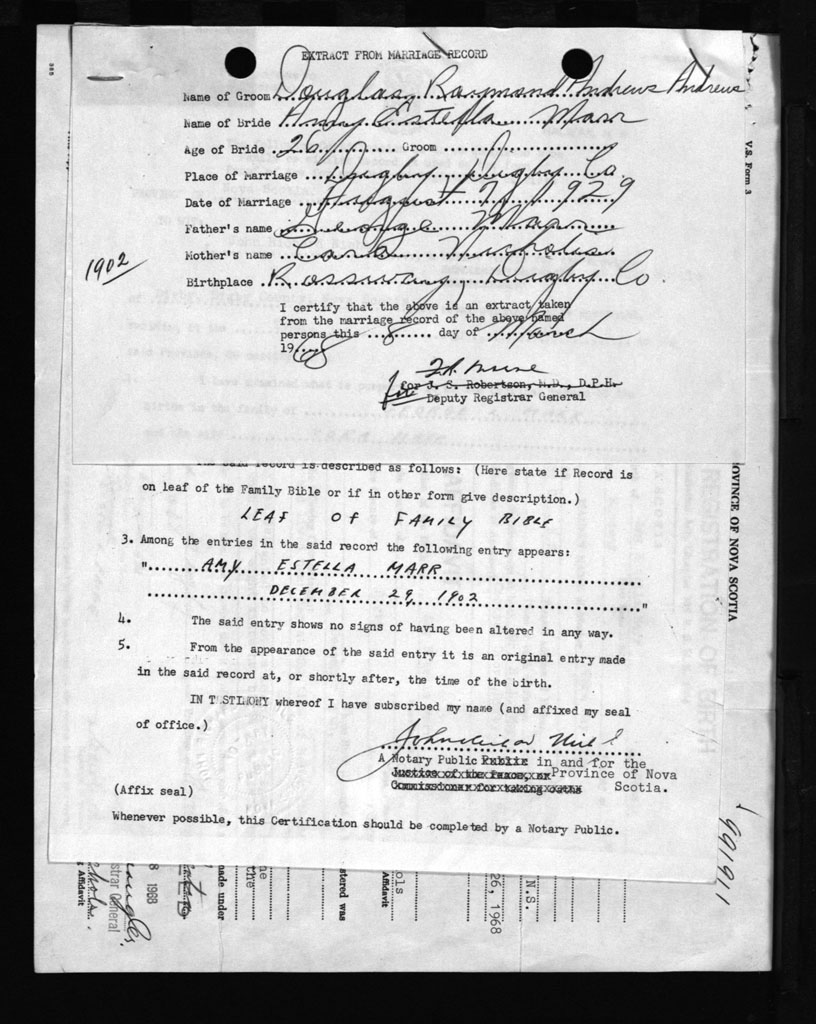 EXTRACT FROM MARRIAGE RECORD
Name of Groom Douglas Raymond Andrews Andrews
Name of Bride Amy Estella Marr
Age of Bride 26 Groom
Place of Marriage Digby Digby Co.
Date of Marriage August 7, 1929
Father's name George Marr
Mother's name Nicholis
1902
Birthplace Rossway, Digby Co.
I certify that the above is an extract taken
from the marriage record of the above named
persons this 8 day of March
1968
for J. S. Robertson, M.D., D.P.H.
for Deputy Registrar General
The said record is described as follows: (Here state if Record is
on leaf of the Family Bible or if in other form give description.)
LEAF OF FAMILY BIBLE
3. Among the entries in the said record the following entry appears:
" AMY ESTELLA MARR
DECEMBER 29, 1902 "
4. The said entry shows no signs of having been altered in any way.
5. From the appearance of the said entry it is an original entry made
in the said record at, or shortly after, the time of the birth.
IN TESTIMONY whereof I have subscribed my name (and affixed my seal
of office.)
A Notary Public Public in and for the
Justice of the Peace, or Province of Nova
Commissioner for taking oaths Scotia.
(Affix seal)
Whenever possible, this Certification should be completed by a Notary Public.
V.S. Form 3
OVINCE OF NOVA SCOTIA
991911
N.S.
26, 1968
ols
Affidavit
stered was
the
made under
8 1968
strar General
g Affidavit